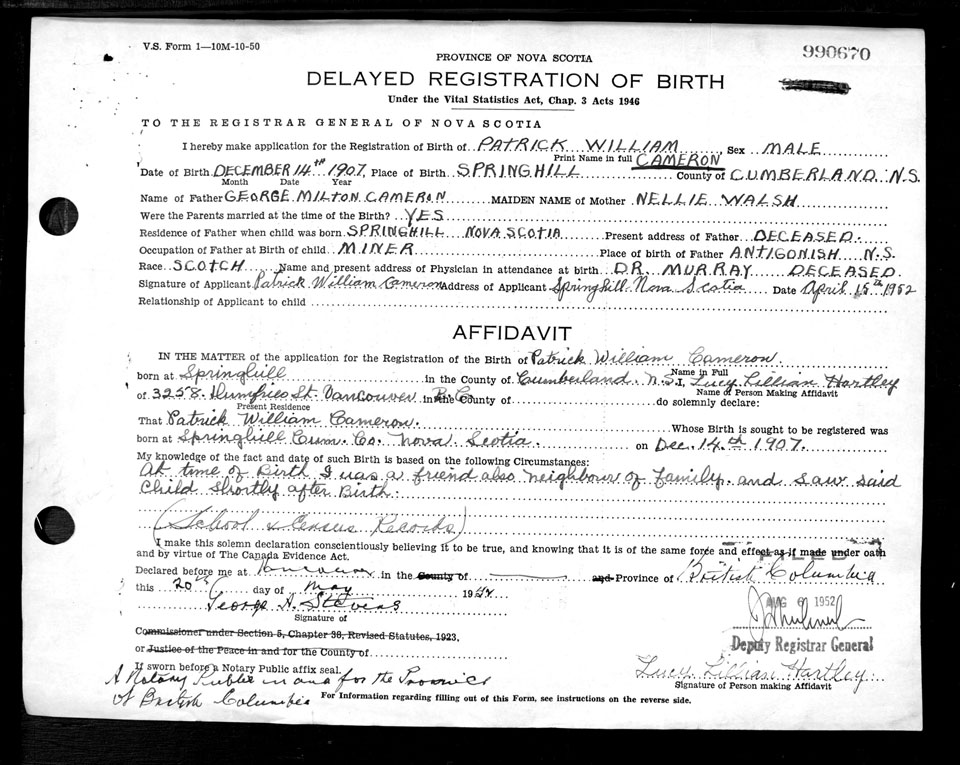 V.S. Form 1—10M-10-50
990670
PROVINCE OF NOVA SCOTIA
DELAYED REGISTRATION OF BIRTH
Under the Vital Statistics Act, Chap. 3 Acts 1946
TO THE REGISTRAR GENERAL OF NOVA SCOTIA
I hereby make application for the Registration of Birth of PATRICK WILLIAM Sex MALE
Print Name in full CAMERON
Date of Birth DECEMBER 14TH 1907, Place of Birth SPRINGHILL County of CUMBERLAND N.S.
Month Date Year
Name of Father GEORGE MILTON CAMERON MAIDEN NAME of Mother NELLIE WALSH
Were the Parents married at the time of the Birth? YES
Residence of Father when child was born SPRINGHILL NOVA SCOTIA Present address of Father DECEASED.
Occupation of Father at Birth of child MINER Place of birth of Father ANTIGONISH N.S.
Race SCOTCH Name and present address of Physician in attendance at birth DR. MURRAY DECEASED.
Signature of Applicant Patrick William Cameron Address of Applicant Springhill Nova Scotia Date April 15th 1952
Relationship of Applicant to child
AFFIDAVIT
IN THE MATTER of the application for the Registration of the Birth of Patrick William Cameron.
born at Springhill in the County of Cumberland. N.S. I, Lucy Lillian Hartley
Name in Full
of 3258 Humfries St. Vancouver B.C. in the County of do solemnly declare:
Name of Person Making Affidavit
Present Residence
That Patrick William Cameron. Whose Birth is sought to be registered was
born at Springhill Cum. Co. Nova Scotia. on Dec. 14th 1907.
My knowledge of the fact and date of such Birth is based on the following Circumstances:
At time of Birth I was a friend also neighbour of Family. and saw said
Child Shortly after Birth.
(School & Census Records)
I make this solemn declaration conscientiously believing it to be true, and knowing that it is of the same force and effect as if made under oath
and by virtue of The Canada Evidence Act.
FILED
Declared before me at Vancouver in the County of and Province of British Columbia
this 20th day of May 1952
AUG 6 1952
George H. Stevens
Signature of
Commissioner under Section 5, Chapter 38, Revised Statutes, 1923,
Deputy Registrar General
or Justice of the Peace in and for the County of
If sworn before a Notary Public affix seal.
Lucy Lillian Hartley
A Notary Public in and for the Province
Signature of Person making Affidavit
of British Columbia
For Information regarding filling out of this Form, see instructions on the reverse side.